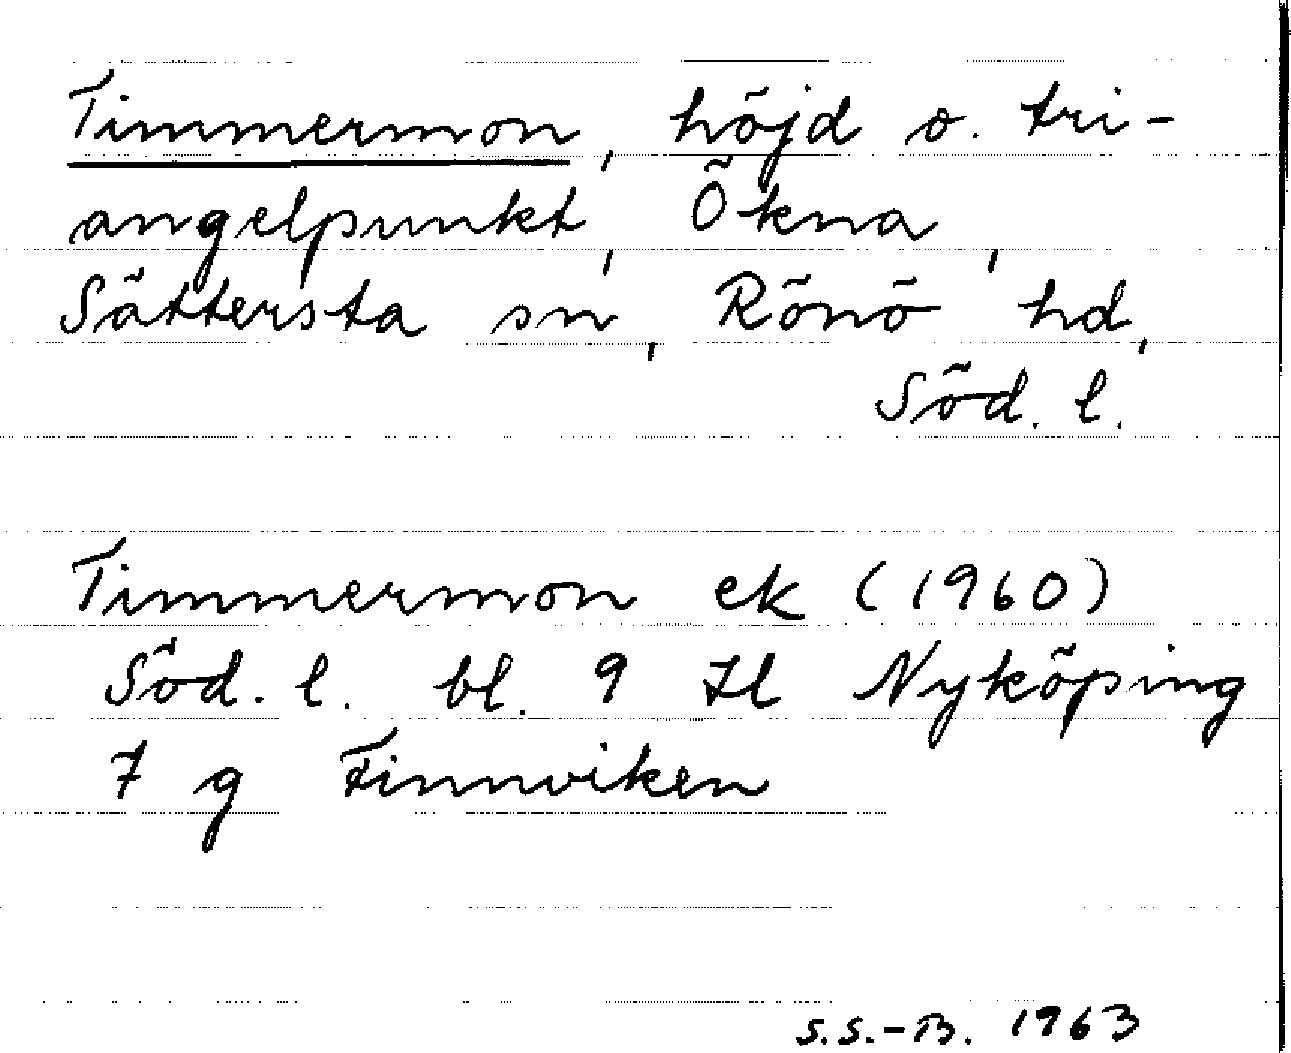 Timmermon, höjd o. tri-
angelpunkt, Ökna,
Sättersta sn, Rönö hd,
Söd. l.
Timmermon ek (1960)
Söd. l. bl. 9 Il Nyköping
7 g Finnviken
S.S.-B. 1963